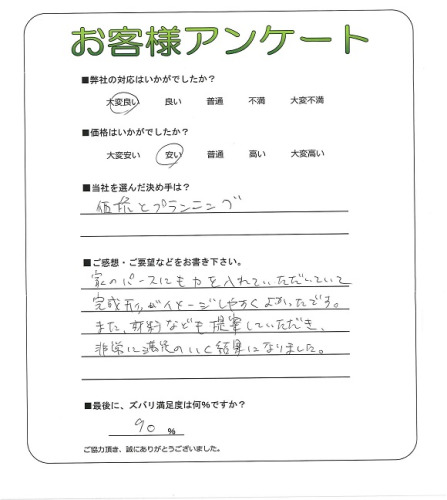 お客様アンケート
■弊社の対応はいかがでしたか?
大変良い 良い 普通 不満 大変不満
■価格はいかがでしたか?
大変安い 安い 普通 高い 大変高い
■当社を選んだ決め手は?
価格とプランニング
■ご感想・ご要望などをお書き下さい。
家のパースにも力を入れていただいていて
完成形がイメージしやすくよかったです。
また、材料なども提案していただき、
非常に満足のいく結果になりました。
■最後に、ズバリ満足度は何%ですか?
90 %
ご協力頂き、誠にありがとうございました。